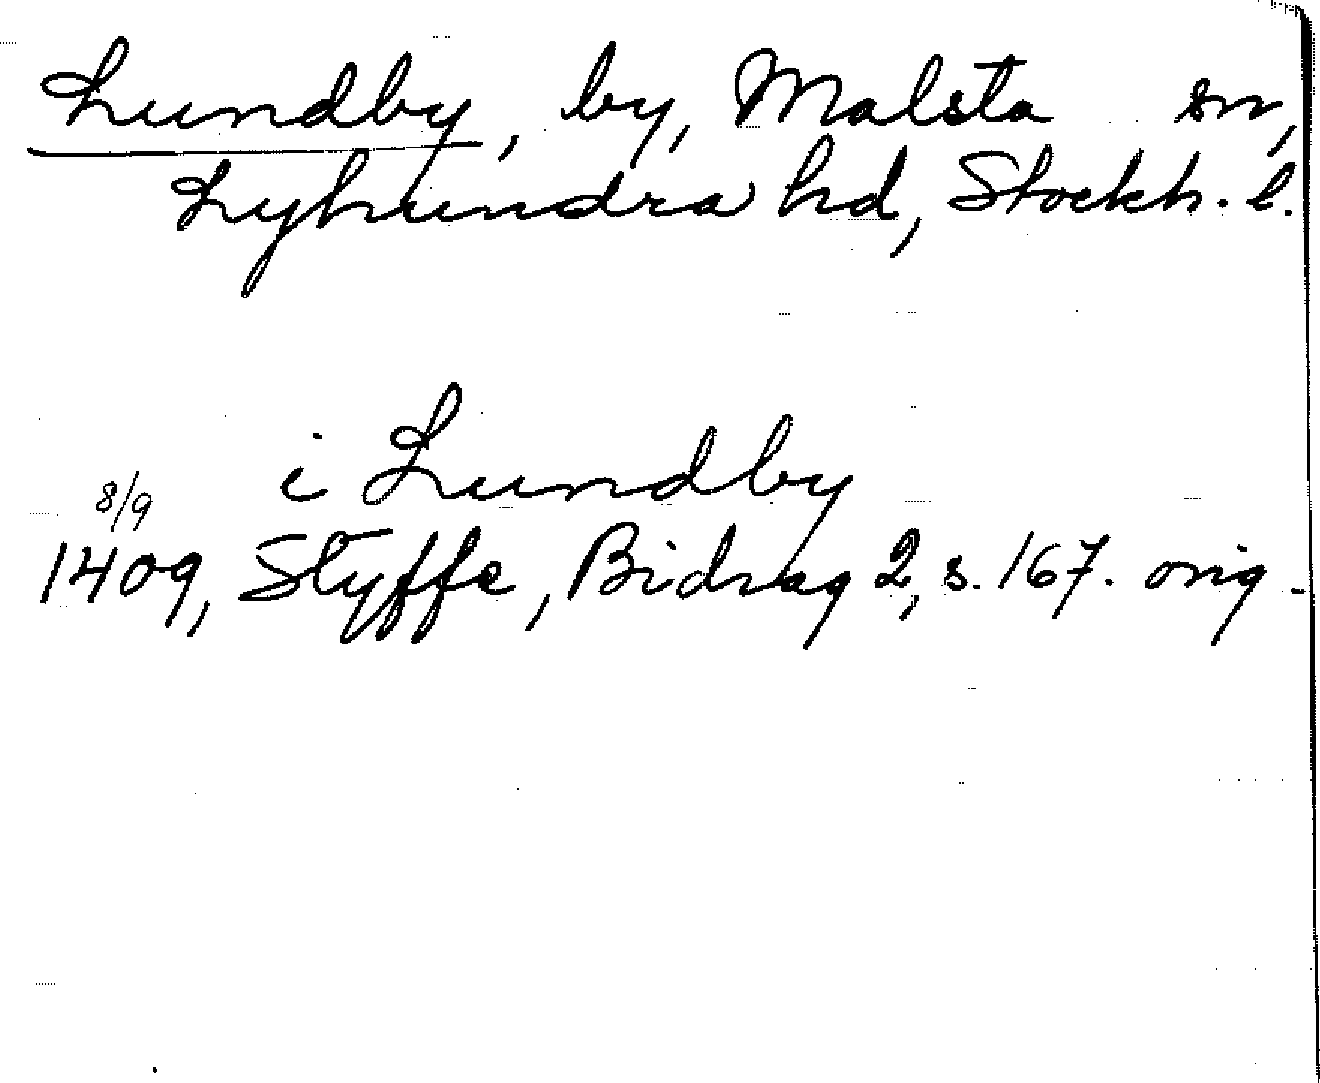 Lundby, by, Malsta sn,
Lyhundra hd, Stockh. l.
i Lundby
8/9
1409, Styffe, Bidrag 2, s. 167. orig.